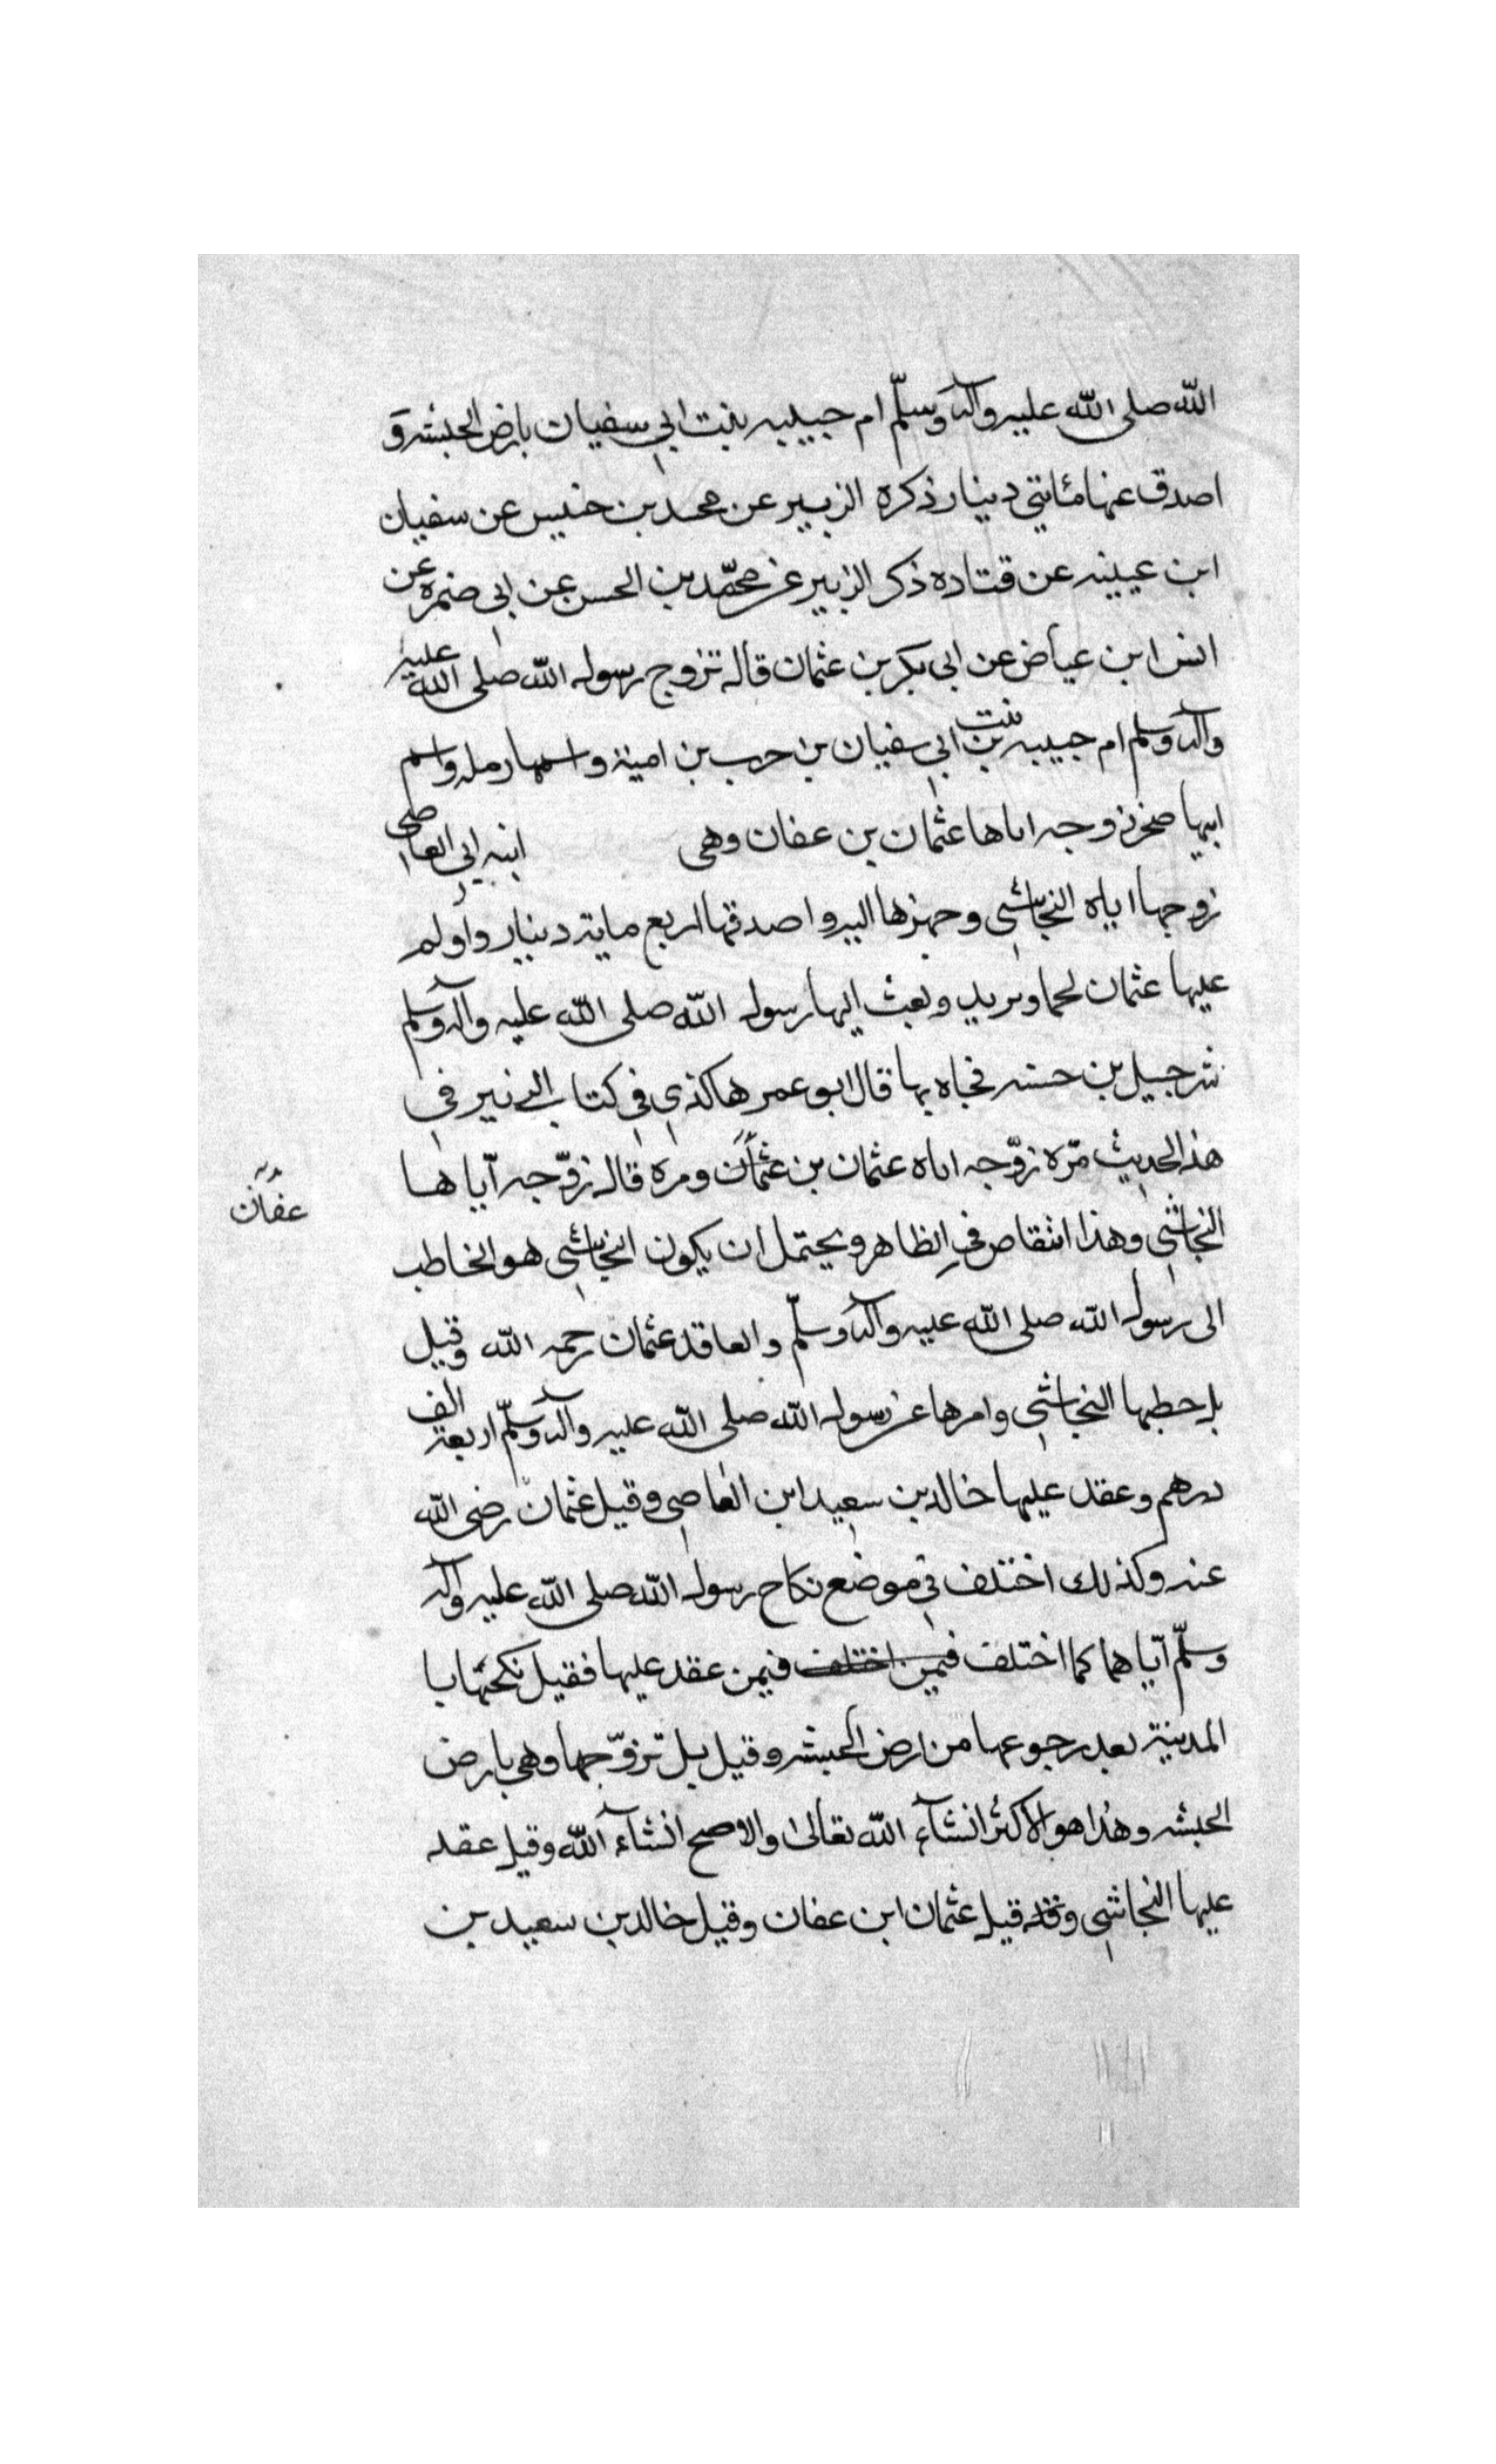 الله صلى الله عليه وآله وسلّم ام حبيبه بنت ابي سفيان بارض الحبشه و
اصدق عنها مائتي دينار ذكره الزبير عن محمد بن خنيس عن سفيان
ابن عيينه عن قتاده ذكر الزبير عن محمّد بن الحسن عن ابي ضمره عن
انس ابن عياض عن ابي بكر بن عثمان قال تزوج رسول الله صلى الله عليه
وآله وسلم ام حبيبه بنت ابي سفيان بن حرب بن امية واسمها رمله واسم
ابيها صخر زوجه اياها عثمان بن عفان وهى ابنه ابي العاصى
زوجها اياه النجاشي وجهزها اليه واصدقها اربع مايته دينار واولم
عليها عثمان لحما وثريد وبعث اليها رسول الله صلى الله عليه وآله وسلم
شرجيل بن حسنه فجاه بها قال ابو عمر هاكذي في كتاب الزبير في
هذا الحديث مرّه زوّجه اياه عثمان بن عثمان ومره قال زوّجه آياها
عفان
النجاشي وهذا انتقاص في الظاهر ويحتمل ان يكون النجاشي هو الخاطب
الى رسول الله صلى الله عليه وآله وسلّم والعاقد عثمان رحمه الله وقيل
بل خطبها النجاشي وامرها عن رسول الله صلى الله عليه وآله وسلّم اربعة الف
درهم وعقد عليها خالد بن سعيد ابن العاصي وقيل عثمان رضى الله
عنه وكذلك اختلف في موضع نكاح رسول الله صلى الله عليه وآله
وسلّم آيّاها كما اختلف فيمن اختلف فيمن عقد عليها فقيل نكحتها با
المدينة بعد رجوعها من ارض الحبشه وقيل بل تزوّجها وهي بارض
الحبشه وهذا هو الاكثر انشآء الله تعالى والاصح انشآء الله وقيل عقد
عليها النجاشي وقد قيل عثمان ابن عفان وقيل خالد بن سعيد بن